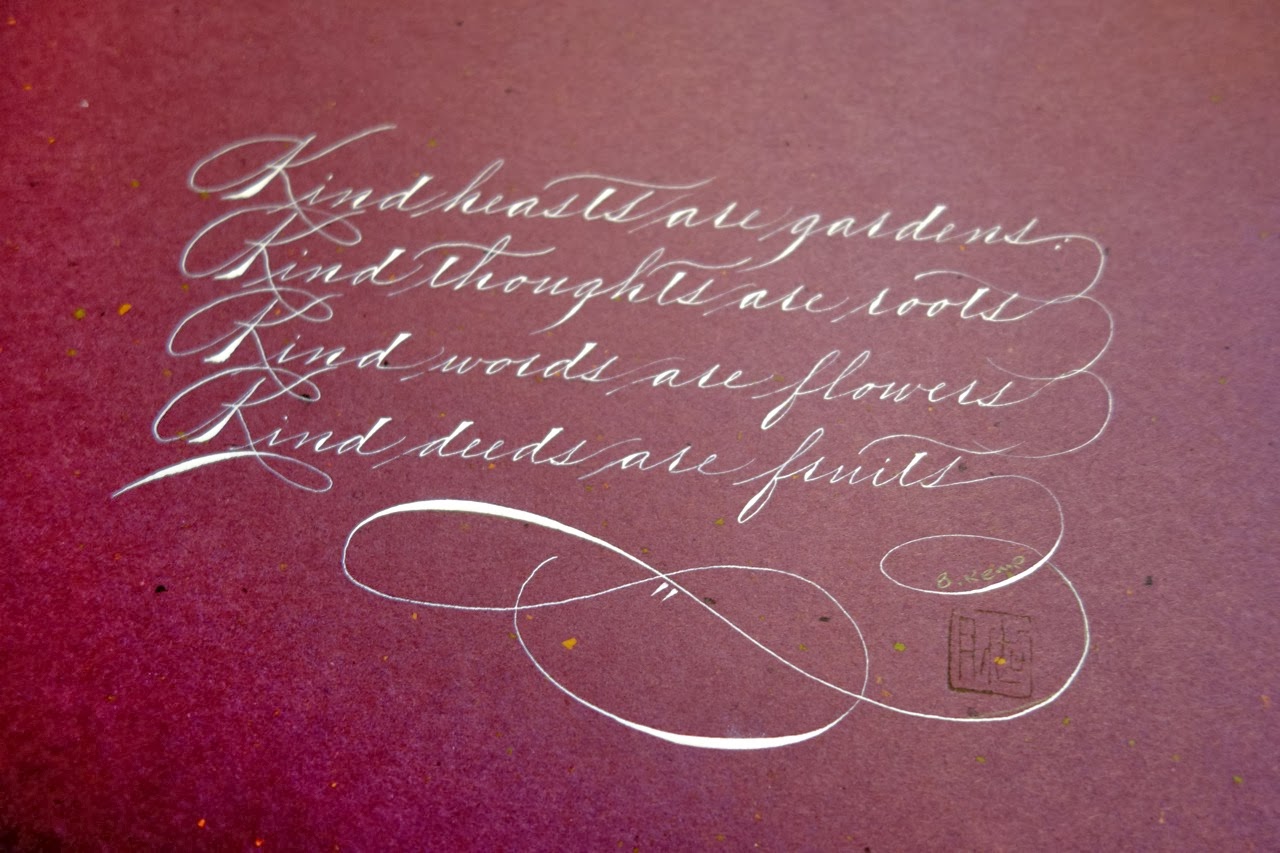 Kind hearts are gardens.
Kind thoughts are roots
Kind words are flowers
Kind deeds are fruits
B. Kemp